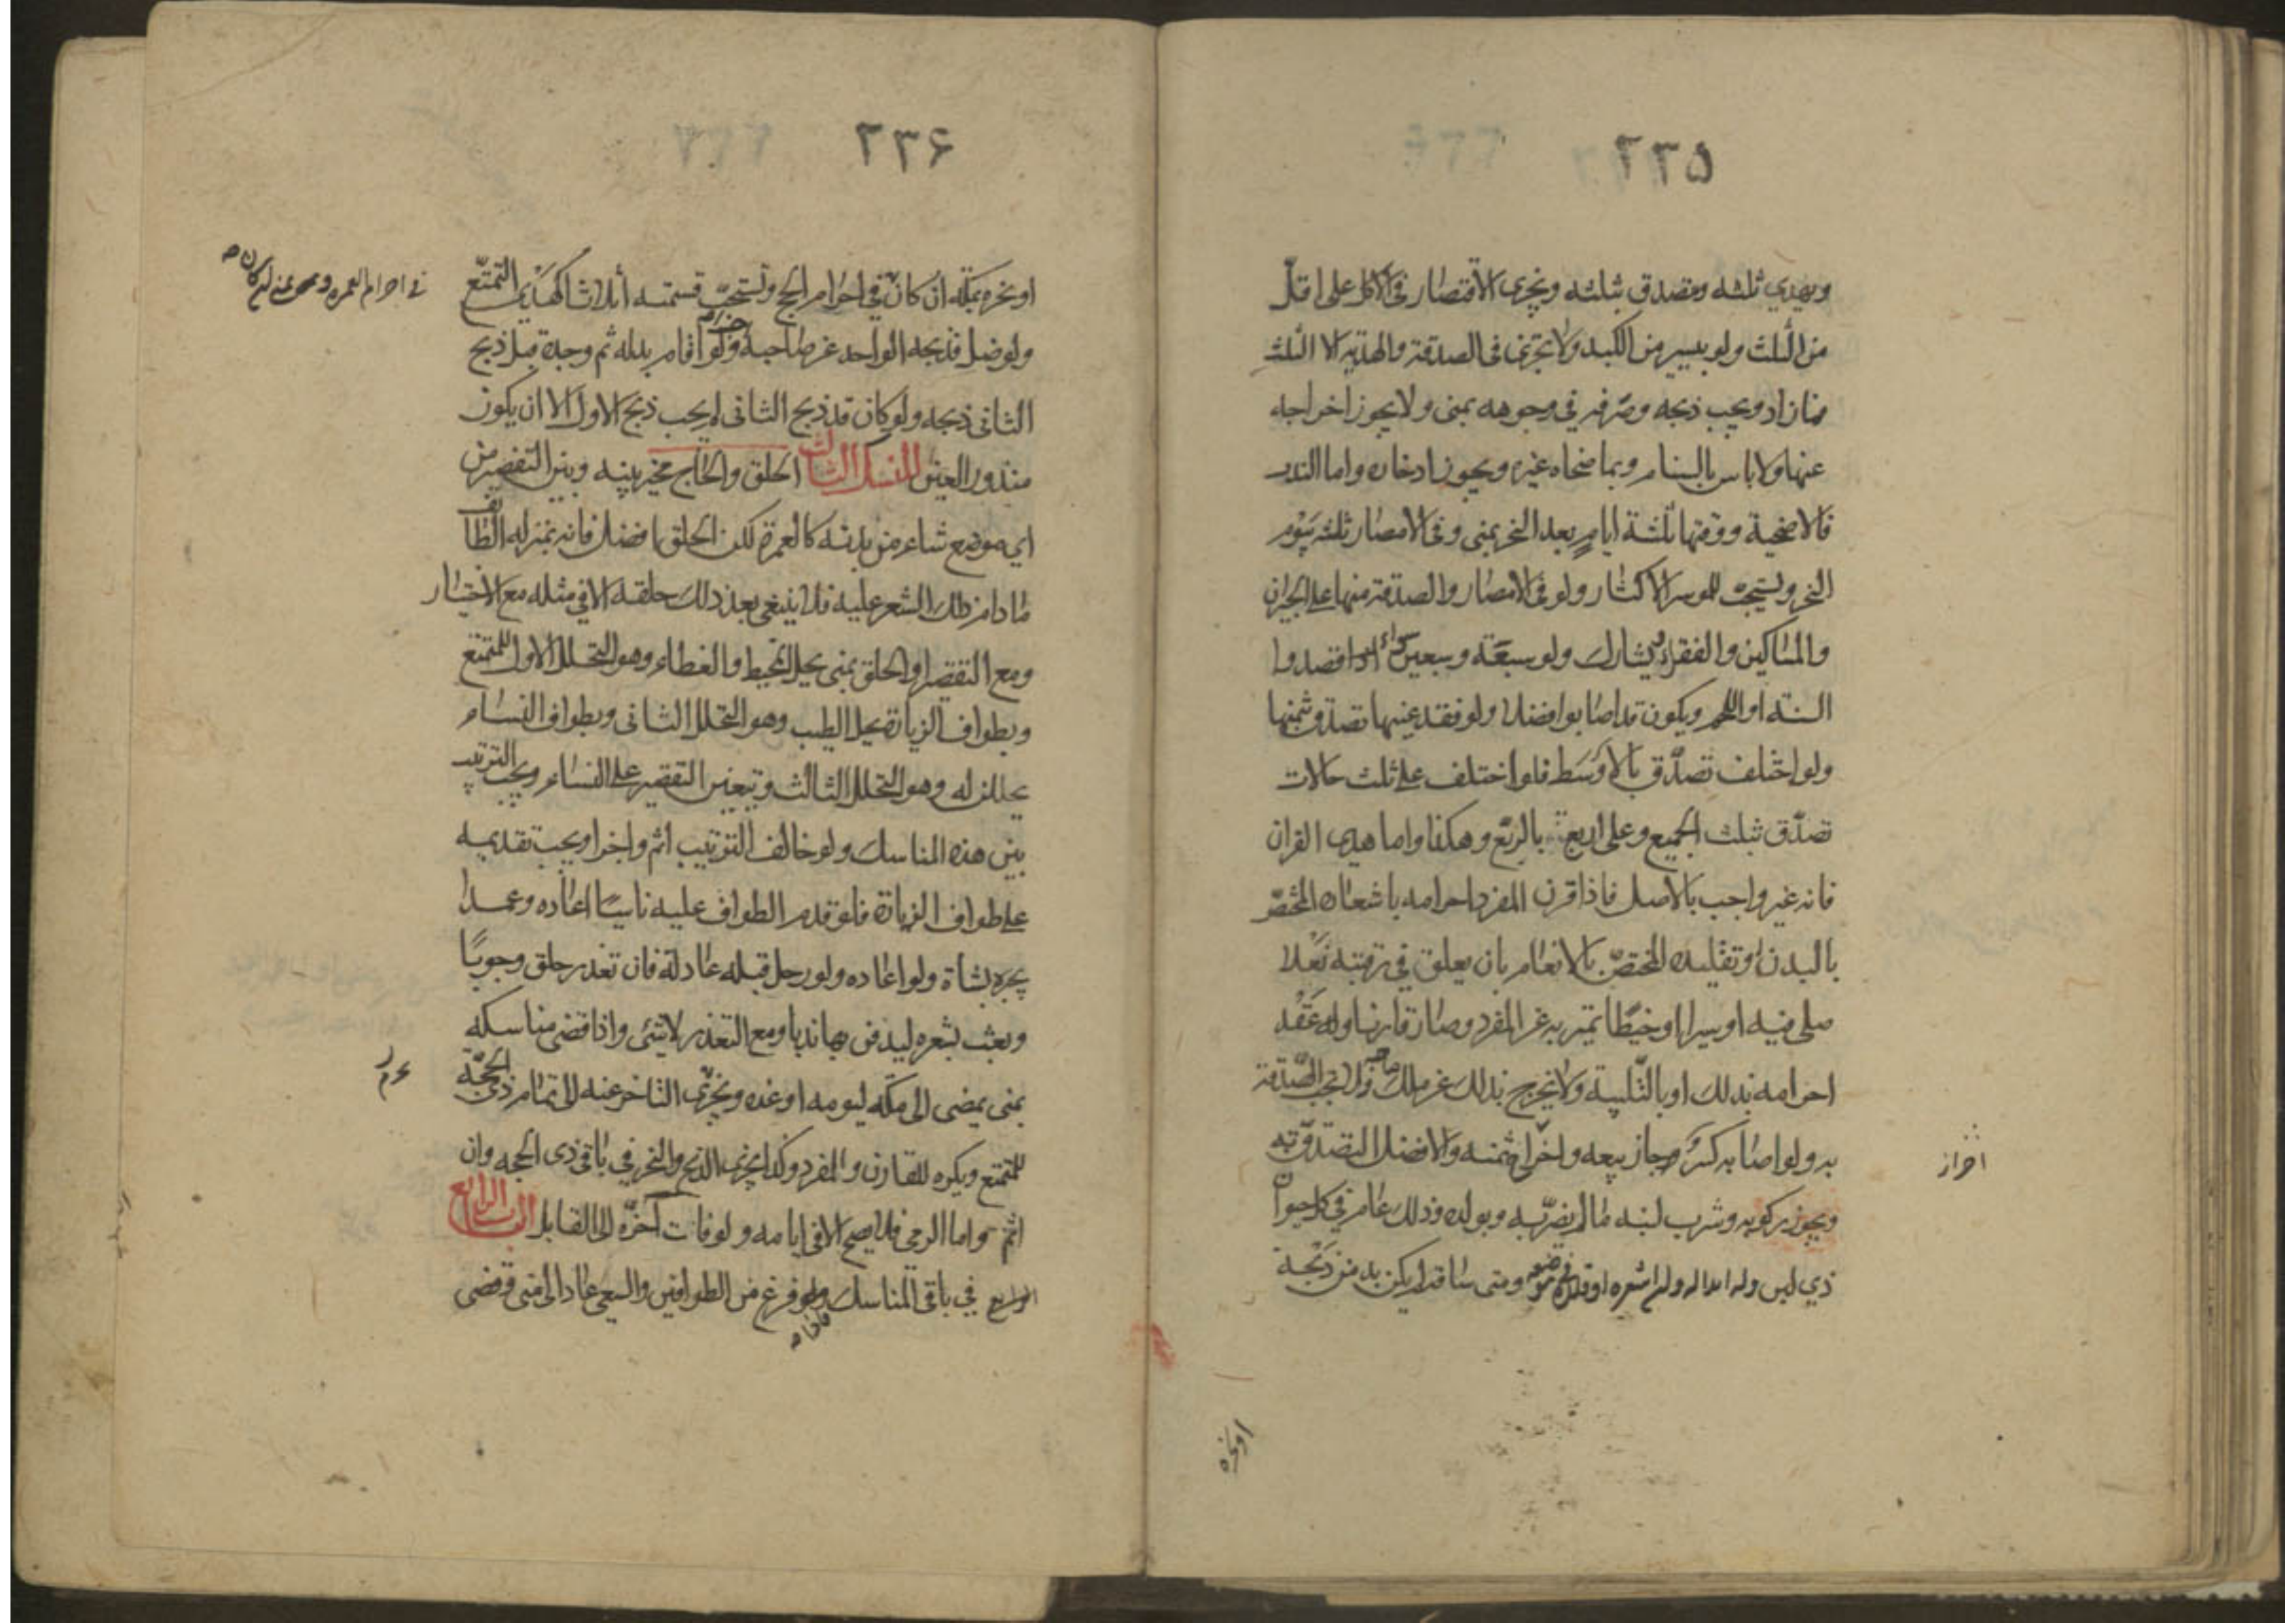 ۲۳۵
ويهدي ثلثه ويتصدق بثلثه ويجزى الاقتصار فى الاكل على اقلّ
من الثلث ولو بيسير من الكبد ولا يجزى فى الصدقة والهدية الا الثلث
فما زاد ويجب ذبحه وصرفه في وجوهه بمنى ولا يجوز اخراجه
عنها ولا باس بالسنام وبما ضحاه غيره ويجوز ادخاره واما الندب
فالاضحية ووقتها ثلثة ايام بعد النحر بمنى وفى الامصار ثلثه بيوم
النحر ويستحب للموسر الاكثار ولو فى الامصار والصدقة منها على الجيران
والمساكين والفقراء يشارك ولو سبعة وسبعين سواء ارادا قصدوا
السنة او اللحم ويكون قد اصابوا فضلا ولو فقد عينها تصدق بثمنها
ولو اختلف تصدّق بالاوسط فلو اختلف على ثلث حالات
تصدّق بثلث الجميع وعلى اربع بالربع وهكذا واما هدى القران
فانه غير واجب بالاصل فاذا قرن المفرد احرامه باشعاره المختصّ
بالبدن او تقليده المختصّ بالانعام بان يعلق في رقبته نعلا
صلى فيه او سيرا او خيطا يتميز به عن المفرد وصار قارنا وله عقد
احرامه بذلك او بالتلبية ولا يخرج بذلك عن ملك صاحبه ولا تجب الصّدقة
به ولو اصابه كسر وجاز بيعه واخراج ثمنه والافضل التصدّق به
احراز
ويجوز ركوبه وشرب لبنه ما لم يضرّ به وبولده وذلك عامر في كل حيوان
ذي لبن وله ابداله ولم اشعره او قلده ومتى ساقه لم يكن بد من ذبحه
او نحره
۲۳۶
او نحره بمكة ان كان في احرام الحج ويستحبّ قسمته أثلاثا كهدي التمتّع
في احرام العمره وبمنى ان كان صح
ولو ضل فذبحه الواجد عن صاحبه اجزاه ولو اقام بدله ثم وجده قبل ذبح
الثاني ذبحه ولو كان قد ذبح الثاني لم يجب ذبح الاول الا ان يكون
منذور العين المنسك الثالث الحلق والحاج مخير بينه وبين التقصير من
اي موضع شاء من بدنه كالعمرة لكن الحلق افضل فانه بمنزله الطائف
ما دام ذلك الشعر عليه فلا ينبغي بعد ذلك حلقه الا في مثله مع الاختيار
ومع التقصير او الحلق بمنى يحل المخيط والغطاء وهو التحلل الاول للمتمتع
وبطواف الزيارة يحل الطيب وهو التحلل الثاني وبطواف النساء
يحللن له وهو التحلل الثالث ويتعين التقصير على النساء ويجب الترتيب
بين هذه المناسك ولو خالف الترتيب اثم واجزا ويجب تقديمه
على طواف الزيارة فلو قدم الطواف عليه ناسيًا اعاده وعمدا
يجبره بشاة ولو اعاده ولو رحل قبله عاد له فان تعذر حلق وجوبًا
وبعث بشعره ليدفن بها ندبا ومع التعذر لا شئ واذا قضى مناسكه
بمنى يمضى الى مكه ليومه او غده ويجزى التاخر عنه الى تمام ذي الحجّة
للمتمتع ويكره للقارن والمفرد وكذا يجزى الذبح والنحر في باقي ذى الحجه وان
اثم واما الرمي فلا يصح الا فى ايامه ولو فات آخّره الى القابل الباب الرابع
الرابع في باقي المناسك ولو فرغ من الطوافين والسعى عاد الى منى وقضى
فاذا صح